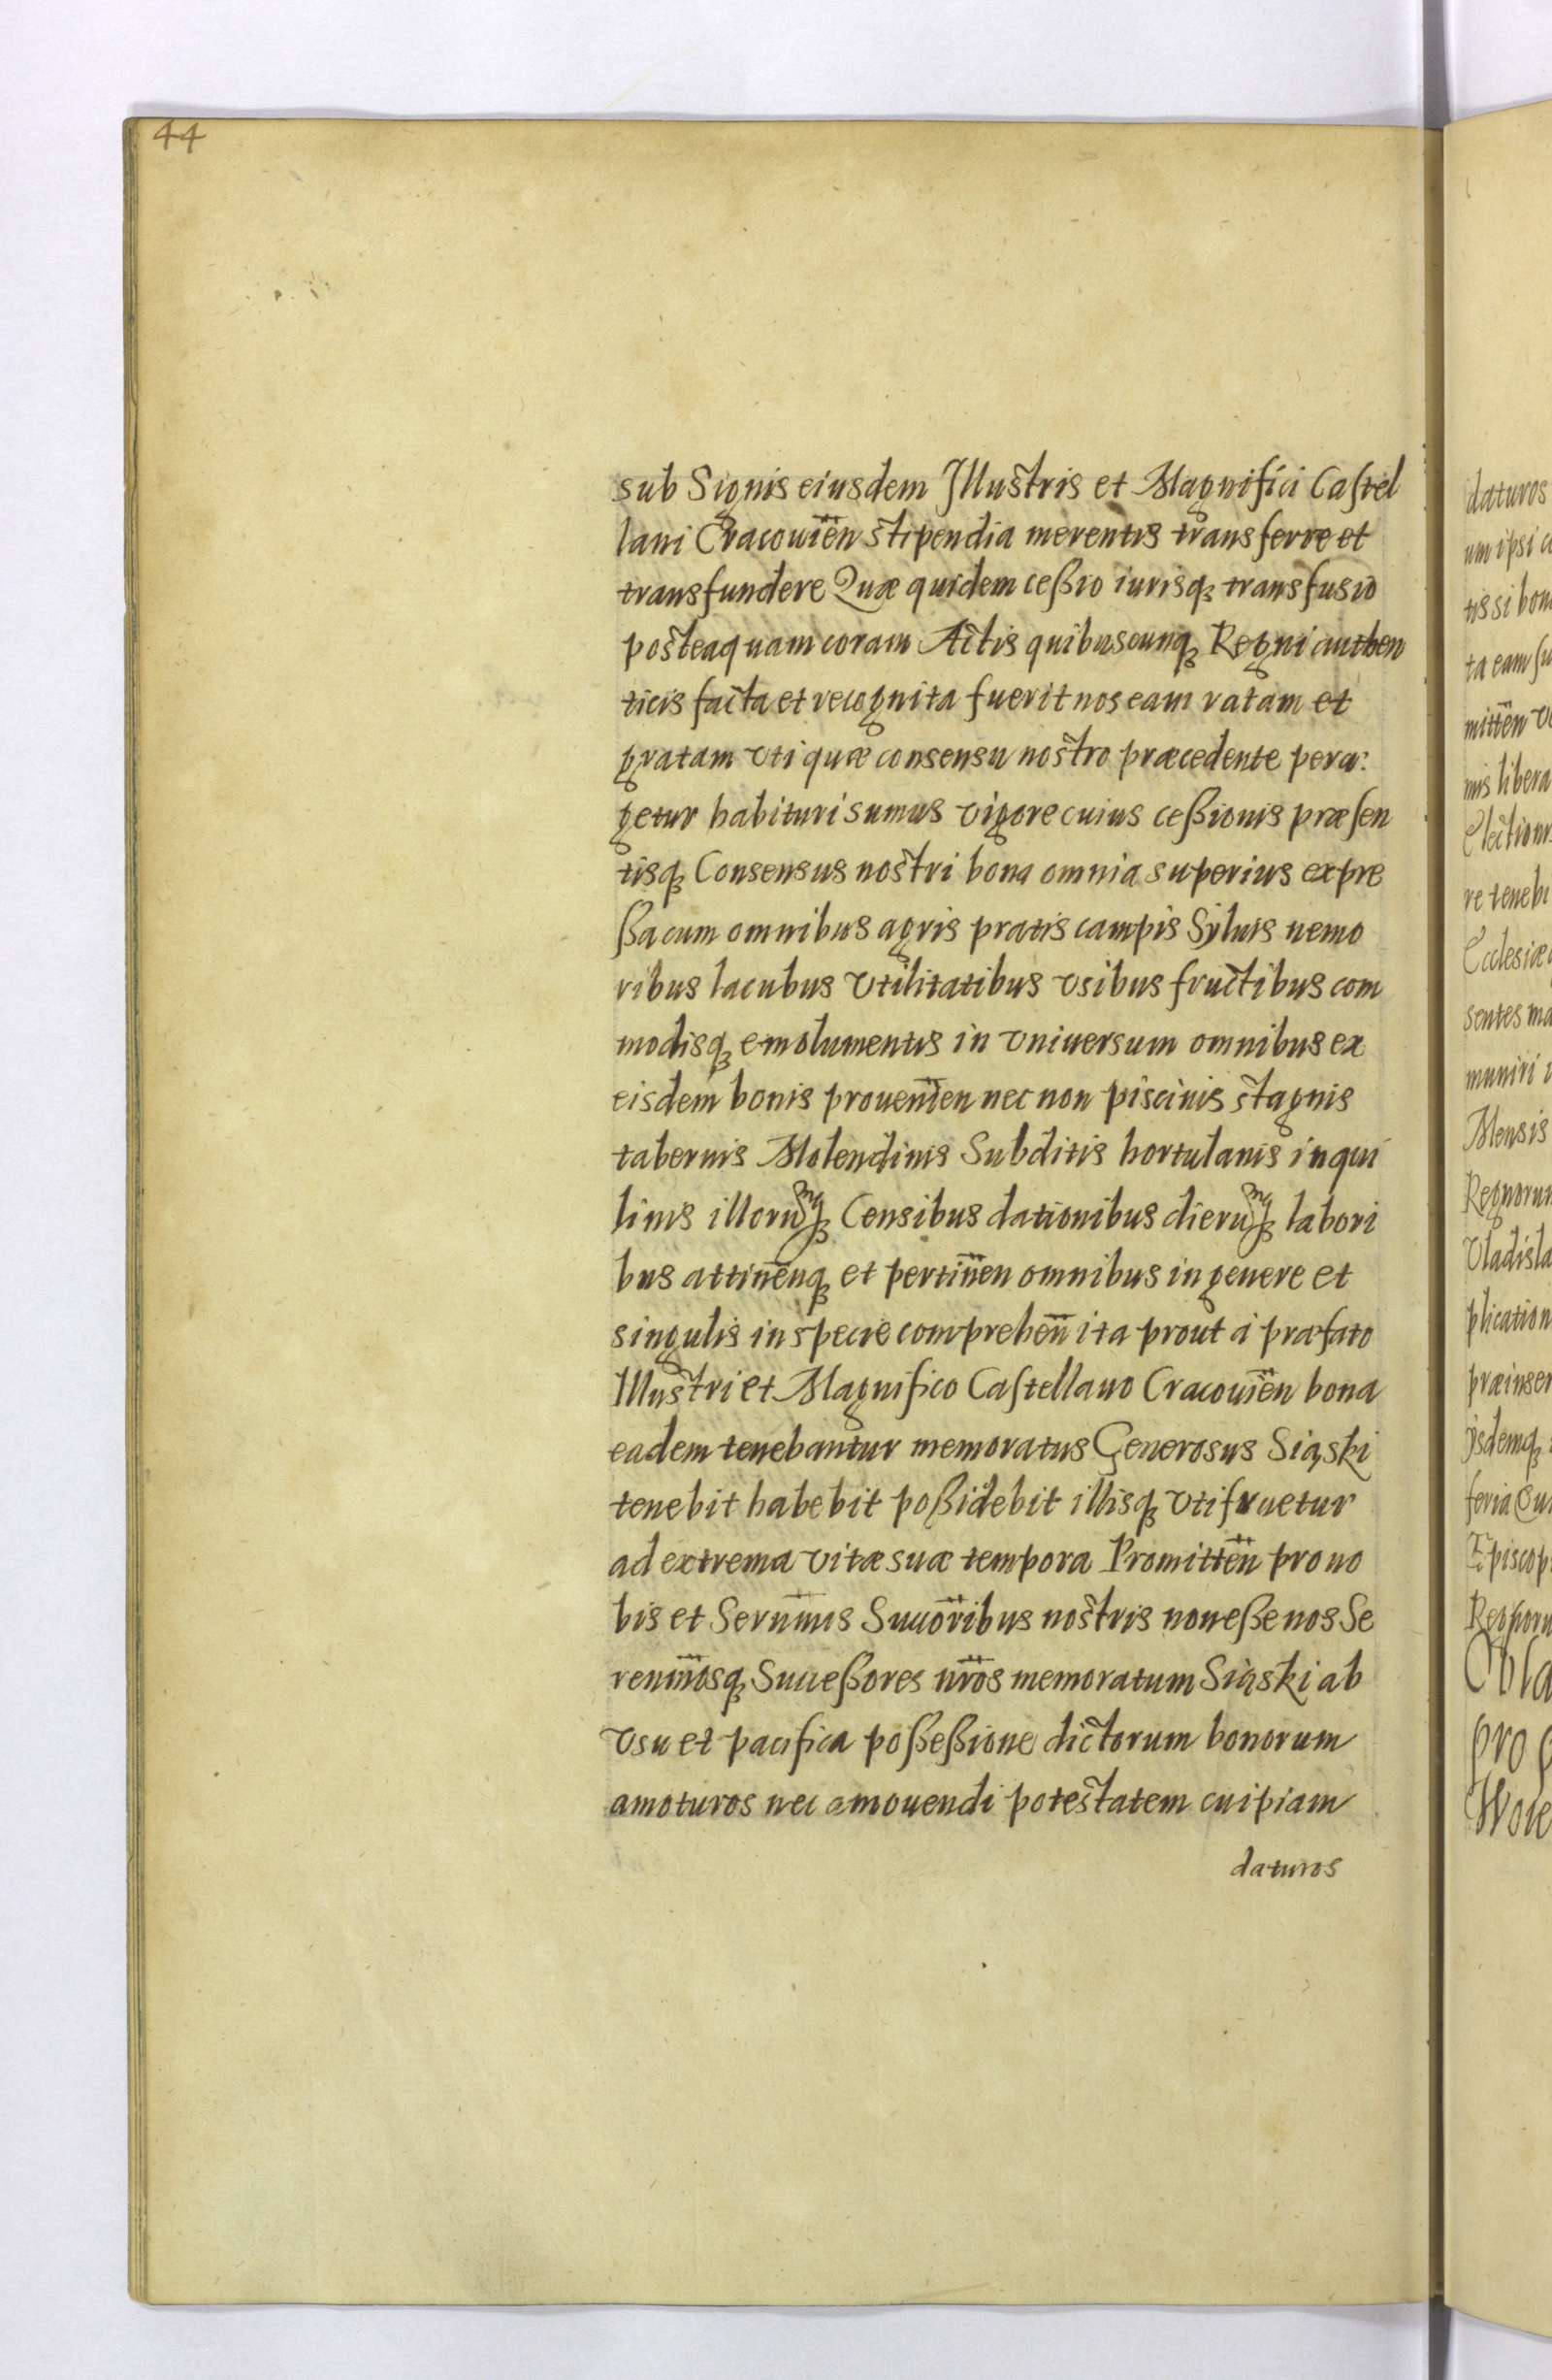 44
sub Signis eiusdem Illustris et Magnifici Castel
lani Cracouien̄ stipendia merentis transferre et
transfundere Quæ quidem ceßio iurisq₃ transfusio
posteaquam coram Actis quibuscunq₃ Regni authen
ticis facta et recognita fuerit nos eam ratam et
gratam vti quæ consensu nostro præcedente pera:
getur habituri sumus vigore cuius ceßionis præsen
tisq₃ Consensus nostri bona omnia superius expre
ßa cum omnibus agris pratis campis Syluis nemo
ribus lacubus vtilitatibus vsibus fructibus com
modisq₃ emolumentis in vniuersum omnibus ex
eisdem bonis prouenien̄ nec non piscinis stagnis
tabernis Molendinis Subditis hortulanis inqui
linis illorumq₃ Censibus dationibus dierumq₃ labori
bus attinen̄q₃ et pertinen̄ omnibus in genere et
singulis in specie comprehen̄ ita prout à præfato
Illustri et Magnifico Castellano Cracouien̄ bona
eadem tenebantur memoratus Generosus Siąski
tenebit habebit poßidebit illisq₃ vti fruetur
ad extrema vitæ suæ tempora Promitten̄ pro no
bis et Seren̄mis Succōribus nostris non eße nos Se
ren̄mosq₃ Succeßores nr̄os memoratum Siąski ab
vsu et pacifica poßeßione dictorum bonorum
amoturos nec amouendi potestatem cuipiam
daturos
daturos
um ipsi
tis si bon
ta eam
mitten̄
mis libera
Election
re tenebi
Ecclesiæ
sentes
muniri
Mensis
Regnorum
Vladisla
plication
præinser
ijsdemq₃
feria
Episcop
Regnoru
Obla
pro